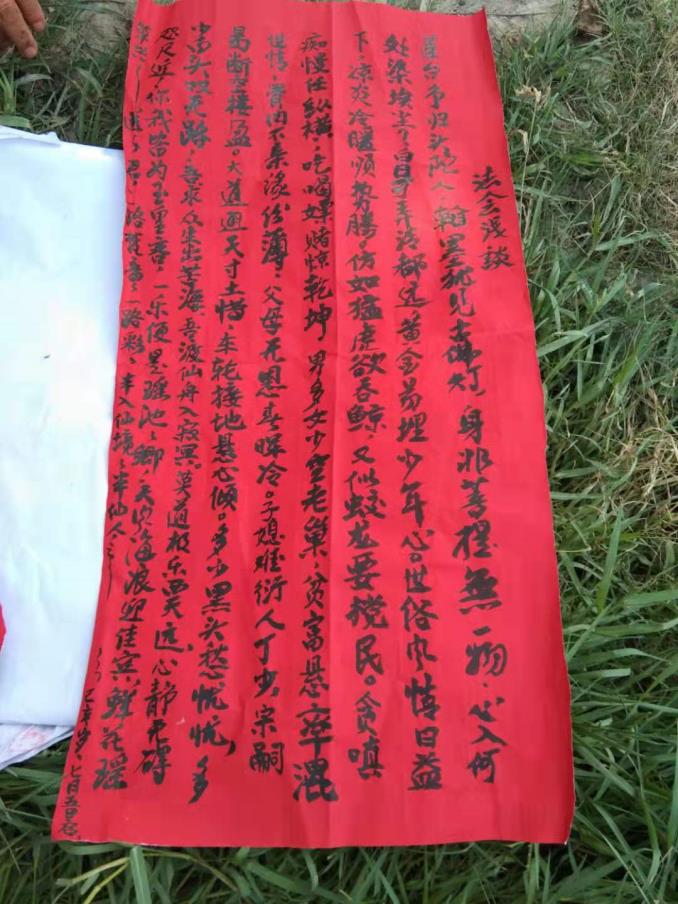 法会浅谈
莲台争归头陀人，翰墨苑见古佛灯，身非菩提無一物，心入何
处染埃尘，易年冷都远，黄金易埋少年心。世俗风情日益
下，凉炎冷暖顺势腾。仿如猛虎欲吞鲸，又似蛟龙要搅民。贪嗔
痴慢任纵横，吃喝嫖赌惊乾坤，男多女少空老巢，贫富悬率混
世情，骨肉不亲缘份薄，父母无恩春晖冷。子媳难衍人丁少，宗嗣
易断空楼盈。大道通天寸土惜，车轮接地悬心倾。多少黑头愁忧忧，多
少白头叹无跡，吾求众生出苦海，吾渡仙舟入寂冥。莫道极乐西天远，心静无碍
咫尺近，你我皆为玉里香，一乐便是瑶池乡，天空海浪迎佳宾，鲜花瑶
一路资，一路粉，半入仙境，半仙人
七月五日